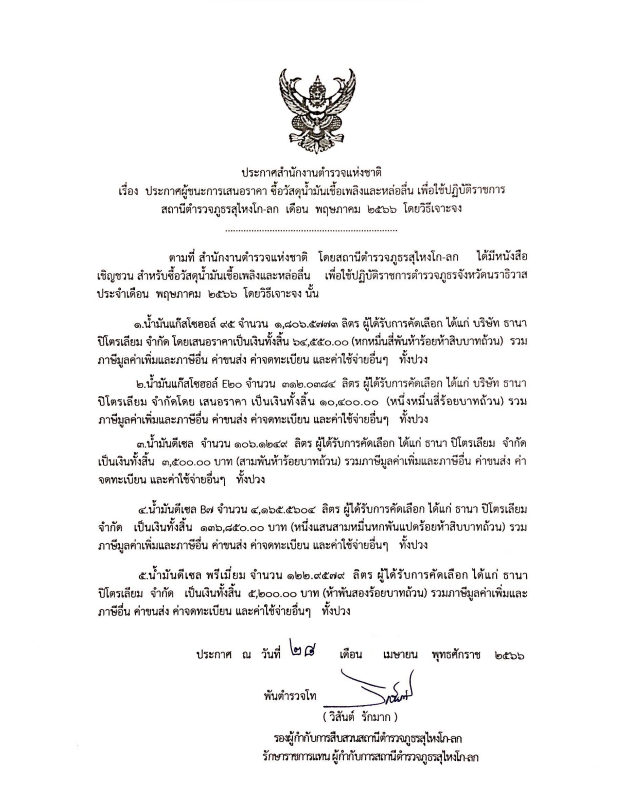 ประกาศสำนักงานตำรวจแห่งชาติ
เรื่อง ประกาศผู้ชนะการเสนอราคา ซื้อวัสดุน้ำมันเชื้อเพลิงและหล่อลื่น เพื่อใช้ปฏิบัติราชการ
สถานีตำรวจภูธรสุไหงโก-ลก เดือน พฤษภาคม ๒๕๖๖ โดยวิธีเจาะจง
ตามที่ สำนักงานตำรวจแห่งชาติ โดยสถานีตำรวจภูธรสุไหงโก-ลก ได้มีหนังสือ
เชิญชวน สำหรับซื้อวัสดุน้ำมันเชื้อเพลิงและหล่อลื่น เพื่อใช้ปฏิบัติราชการตำรวจภูธรจังหวัดนราธิวาส
ประจำเดือน พฤษภาคม ๒๕๖๖ โดยวิธีเจาะจง นั้น
๑.น้ำมันแก๊สโซฮอล์ ๙๕ จำนวน ๑,๘๐๖.๕๗๗๓ ลิตร ผู้ได้รับการคัดเลือก ได้แก่ บริษัท ธานา
ปิโตรเลียม จำกัด โดยเสนอราคาเป็นเงินทั้งสิ้น ๖๔,๕๕๐.๐๐ (หกหมื่นสี่พันห้าร้อยห้าสิบบาทถ้วน) รวม
ภาษีมูลค่าเพิ่มและภาษีอื่น ค่าขนส่ง ค่าจดทะเบียน และค่าใช้จ่ายอื่นๆ ทั้งปวง
๒.น้ำมันแก๊สโซฮอล์ E๒๐ จำนวน ๓๑๒.๐๓๘๔ ลิตร ผู้ได้รับการคัดเลือก ได้แก่ บริษัท ธานา
ปิโตรเลียม จำกัดโดย เสนอราคา เป็นเงินทั้งสิ้น ๑๐,๔๐๐.๐๐ (หนึ่งหมื่นสี่ร้อยบาทถ้วน) รวม
ภาษีมูลค่าเพิ่มและภาษีอื่น ค่าขนส่ง ค่าจดทะเบียน และค่าใช้จ่ายอื่นๆ ทั้งปวง
๓.น้ำมันดีเซล จำนวน ๑๐๖.๑๒๔๙ ลิตร ผู้ได้รับการคัดเลือก ได้แก่ ธานา ปิโตรเลียม จำกัด
เป็นเงินทั้งสิ้น ๓,๕๐๐.๐๐ บาท (สามพันห้าร้อยบาทถ้วน) รวมภาษีมูลค่าเพิ่มและภาษีอื่น ค่าขนส่ง ค่า
จดทะเบียน และค่าใช้จ่ายอื่นๆ ทั้งปวง
๔.น้ำมันดีเซล B๗ จำนวน ๔,๑๖๕.๕๖๐๔ ลิตร ผู้ได้รับการคัดเลือก ได้แก่ ธานา ปิโตรเลียม
จำกัด เป็นเงินทั้งสิ้น ๑๓๖,๘๕๐.๐๐ บาท (หนึ่งแสนสามหมื่นหกพันแปดร้อยห้าสิบบาทถ้วน) รวม
ภาษีมูลค่าเพิ่มและภาษีอื่น ค่าขนส่ง ค่าจดทะเบียน และค่าใช้จ่ายอื่นๆ ทั้งปวง
๕.น้ำมันดีเซล พรีเมี่ยม จำนวน ๑๒๒.๙๕๗๙ ลิตร ผู้ได้รับการคัดเลือก ได้แก่ ธานา
ปิโตรเลียม จำกัด เป็นเงินทั้งสิ้น ๕,๒๐๐.๐๐ บาท (ห้าพันสองร้อยบาทถ้วน) รวมภาษีมูลค่าเพิ่มและ
ภาษีอื่น ค่าขนส่ง ค่าจดทะเบียน และค่าใช้จ่ายอื่นๆ ทั้งปวง
ประกาศ ณ วันที่ ๒๘ เดือน เมษายน พุทธศักราช ๒๕๖๖
พันตำรวจโท
( วิสันต์ รักมาก )
รองผู้กำกับการสืบสวนสถานีตำรวจภูธรสุไหงโก-ลก
รักษาราชการแทน ผู้กำกับการสถานีตำรวจภูธรสุไหงโก-ลก